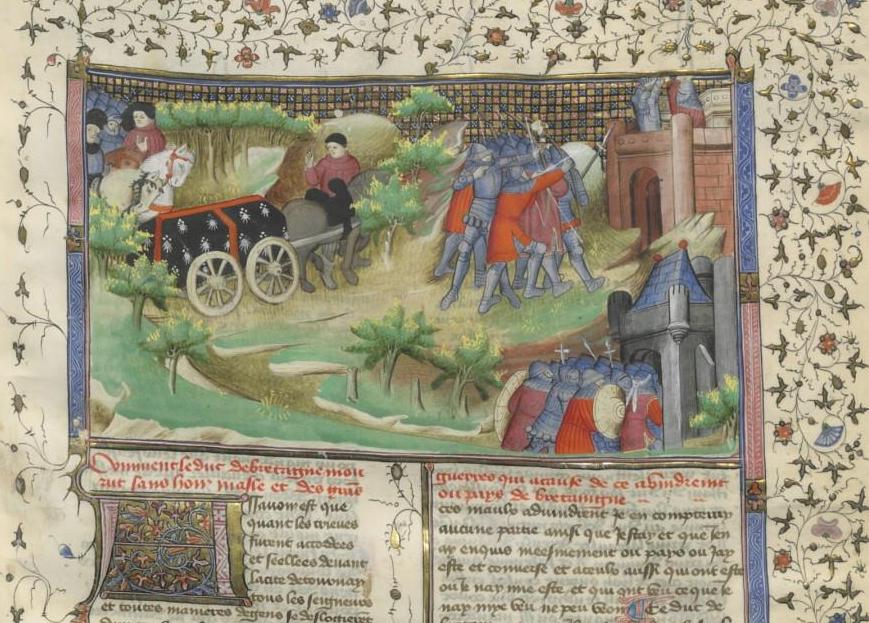 Comment le duc de bretaigne mou
rut sans hoir masle et des grans
guerres qui a cause de ce advindrent
ou pays de bretaigne
Assavoir est que
quant les trieves
furent accordees
et seellees devant
la cite de tournay
tous les seigneurs
et toutes manieres de gens se deslogierent
ces maulx advindrent Je en compteray
aucune partie ainsi que Je scay et que Jen
ay enquis meesmement ou pays ou Jay
este et converse et a ceulx aussi qui ont este
ou Je nay mie este et qui ont veu ce que Je
nay mye veu ne peu veoir Le duc de